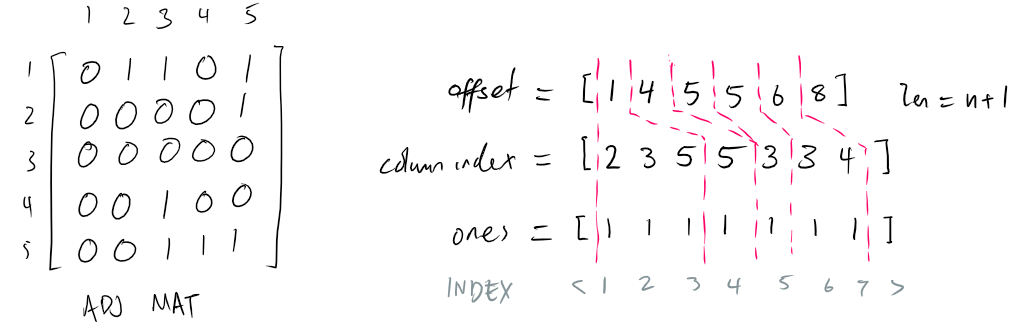 1 2 3 4 5
1 0 1 1 0 1
2 0 0 0 0 1
3 0 0 0 0 0
4 0 0 1 0 0
5 0 0 1 1 1
ADJ MAT
offset = [1 4 5 5 6 8] len = n+1
column index = [2 3 5 5 3 3 4]
ones = [1 1 1 1 1 1 1]
INDEX < 1 2 3 4 5 6 7 >